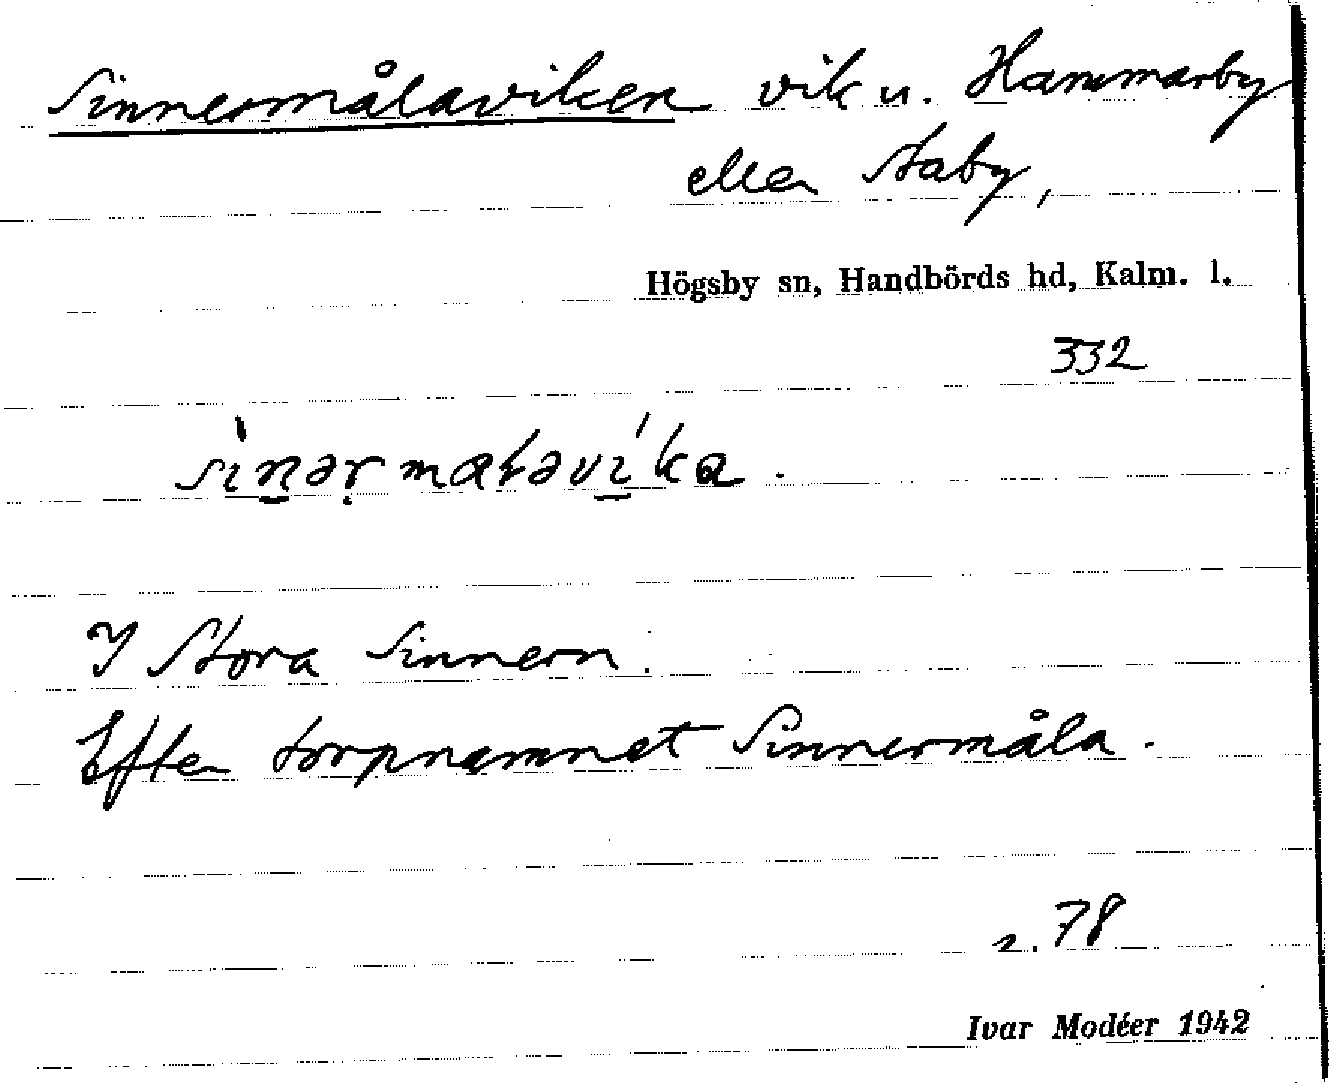 Sinnermålaviken vik u. Hammarby
eller Staby,
Högsby sn, Handbörds hd, Kalm. l.
332
I Stora Sinnern.
Efter torpnamnet Sinnermåla.
s. 78
Ivar Modéer 1942